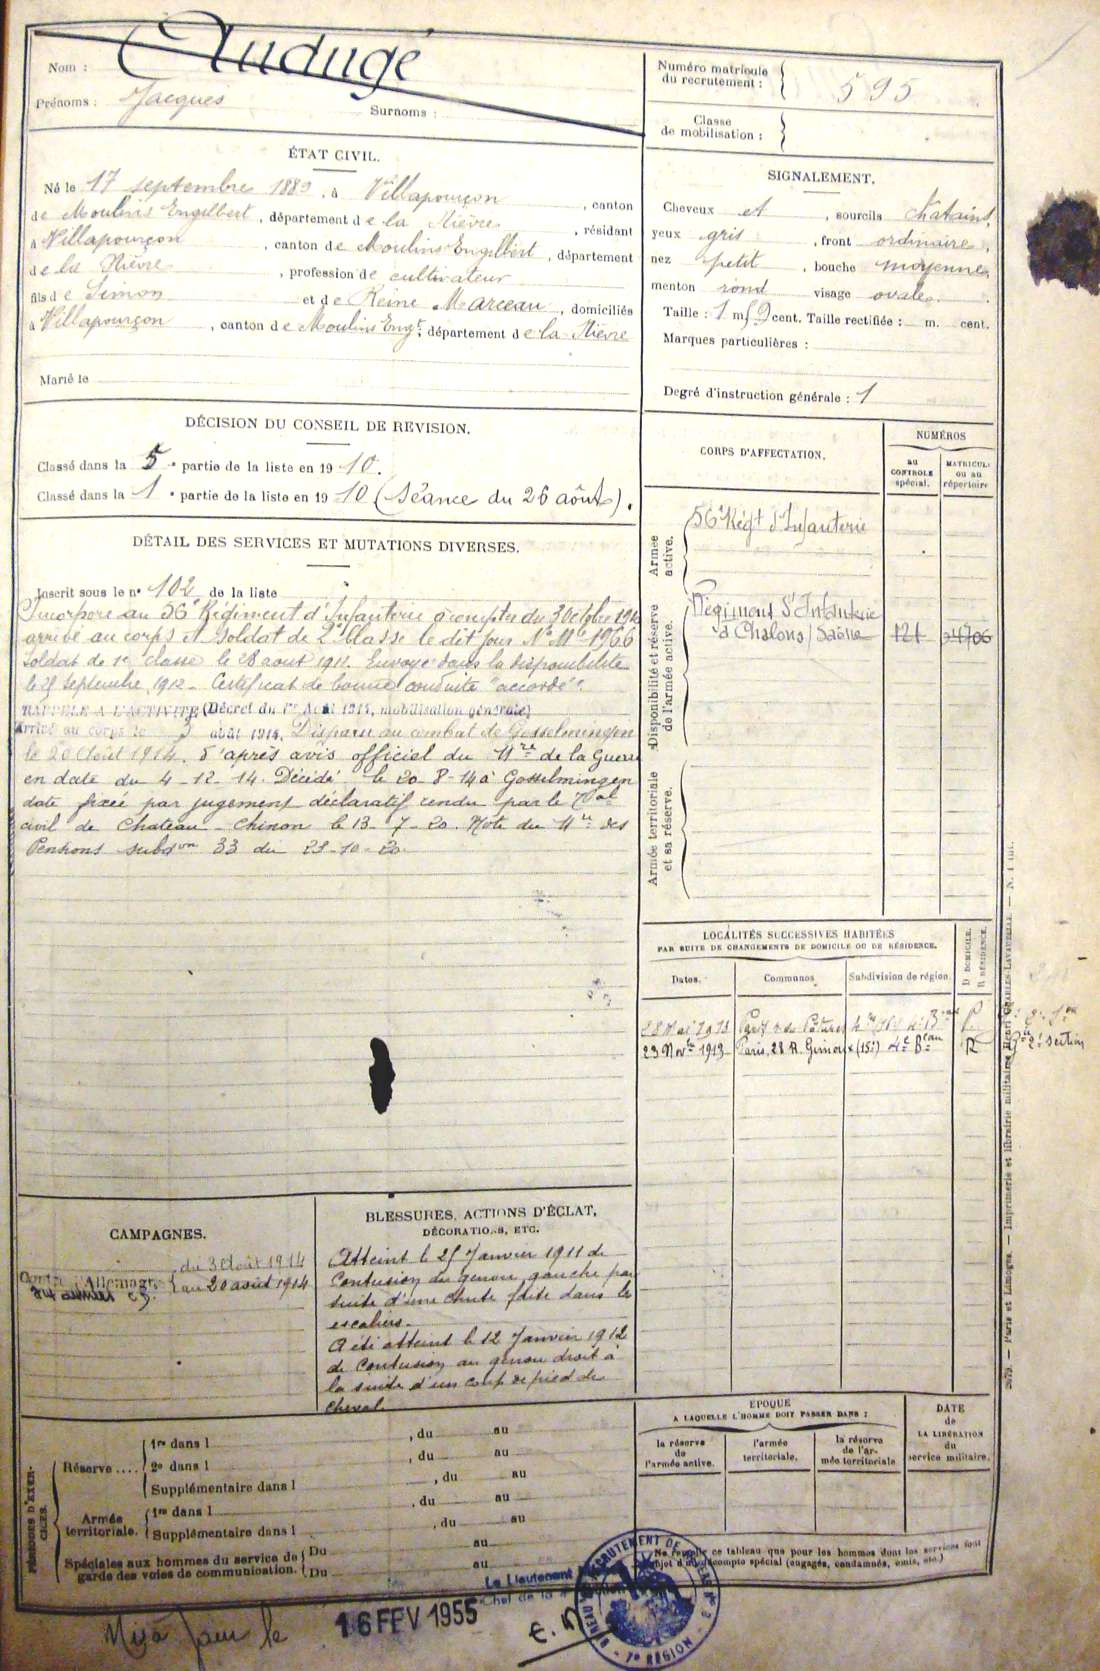 Nom : Audugé
Prénoms : Jacques Surnoms :
Numéro matricule du recrutement : 595
Classe de mobilisation :
ÉTAT CIVIL.
Né le 17 septembre 1889, à Villapourçon, canton
de Moulins Engilbert, département de la Nièvre, résidant
à Villapourçon, canton de Moulins Engilbert, département
de la Nièvre, profession de cultivateur
fils de Simon et de Reine Marceau, domiciliés
à Villapourçon, canton de Moulins Engt, département de la Nièvre
Marié le
SIGNALEMENT.
Cheveux et, sourcils châtains,
yeux gris, front ordinaire,
nez petit, bouche moyenne,
menton rond visage ovale.
Taille : 1 m 59 cent. Taille rectifiée : m. cent.
Marques particulières :
Degré d'instruction générale : 1
DÉCISION DU CONSEIL DE REVISION.
Classé dans la 5e partie de la liste en 1910.
Classé dans la 1e partie de la liste en 1910 (Séance du 26 août).
DÉTAIL DES SERVICES ET MUTATIONS DIVERSES.
Inscrit sous le no 102 de la liste
Incorporé au 56e Régiment d'Infanterie à compter du 3 Octobre 1910
arrivé au corps et Soldat de 2e classe le dit jour No Mle 1966
Soldat de 1e classe le 28 aout 1911. Envoyé dans la disponibilité
le 25 Septembre 1912 - Certificat de bonne conduite "accordé".
RAPPELÉ A L'ACTIVITÉ (Décret du 1er Août 1914, mobilisation générale)
Arrivé au corps le 3 août 1914. Disparu au combat de Gosselmingen
le 20 Août 1914. d'après avis officiel du Mre de la Guerre
en date du 4-12-14. Décédé le 20-8-14 à Gosselmingen
date fixée par jugement déclaratif rendu par le Tal
civil de Château-Chinon le 13-7-20. Note du Mre des
Pensions subdon 33 du 21-10-20.
CORPS D'AFFECTATION.
NUMÉROS
au CONTROLE spécial.
MATRICULE ou au répertoire
Armée active.
56e Régt d'Infanterie
Disponibilité et réserve de l'armée active.
Régiment d'Infanterie
à Chalons s/ Saône 121
Armée territoriale et sa réserve.
LOCALITÉS SUCCESSIVES HABITÉES
PAR SUITE DE CHANGEMENTS DE DOMICILE OU DE RÉSIDENCE.
Dates. Communes. Subdivision de région. D DOMICILE. R RÉSIDENCE.
1913 Paris
23 Novbre 1913 Paris, 28 R. (15e) 4e Beau R
2e section
CAMPAGNES.
Contre l'Allemagne du 3 Août 1914
au 20 août 1914
BLESSURES, ACTIONS D'ÉCLAT,
DÉCORATIONS, ETC.
Atteint le 25 Janvier 1911 de
Contusion du genou gauche par
suite d'une chute faite dans les
escaliers.
A été atteint le 12 Janvier 1912
de Contusion au genou droit à
la suite d'un coup de pied de
cheval
PÉRIODES D'EXERCICES.
Réserve ....
1re dans l , du au
2e dans l , du au
Supplémentaire dans l , du au
Armée territoriale.
1re dans l , du au
Supplémentaire dans l , du au
Spéciales aux hommes du service de garde des voies de communication.
Du au
Du au
ÉPOQUE
A LAQUELLE L'HOMME DOIT PASSER DANS :
la réserve de l'armée active.
l'armée territoriale.
la réserve de l'armée territoriale
DATE de LA LIBÉRATION du service militaire.
Ne remplir ce tableau que pour les hommes dont les services font
l'objet d'un décompte spécial (engagés, condamnés, omis, etc.)
2679. — Paris et Limoges. — Imprimerie et librairie militaires Henri CHARLES-LAVAUZELLE.
Mis à jour le 16 FEV 1955
Le Lieutenant
Chef de la
BUREAU DE RECRUTEMENT
7e RÉGION